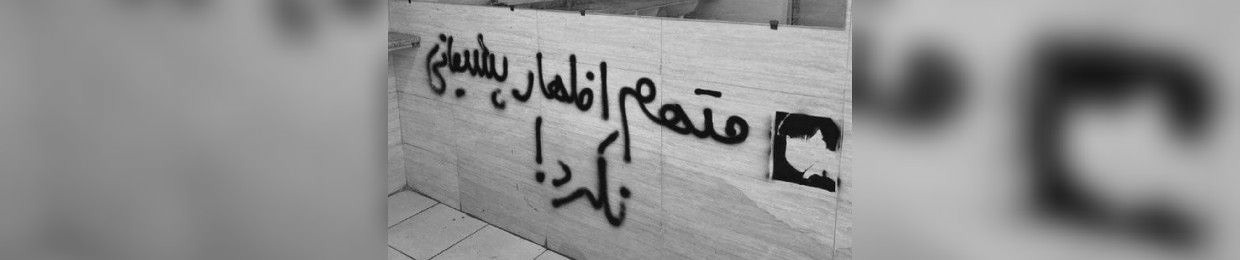 متهم اظهار پشیمانی
نکرد!